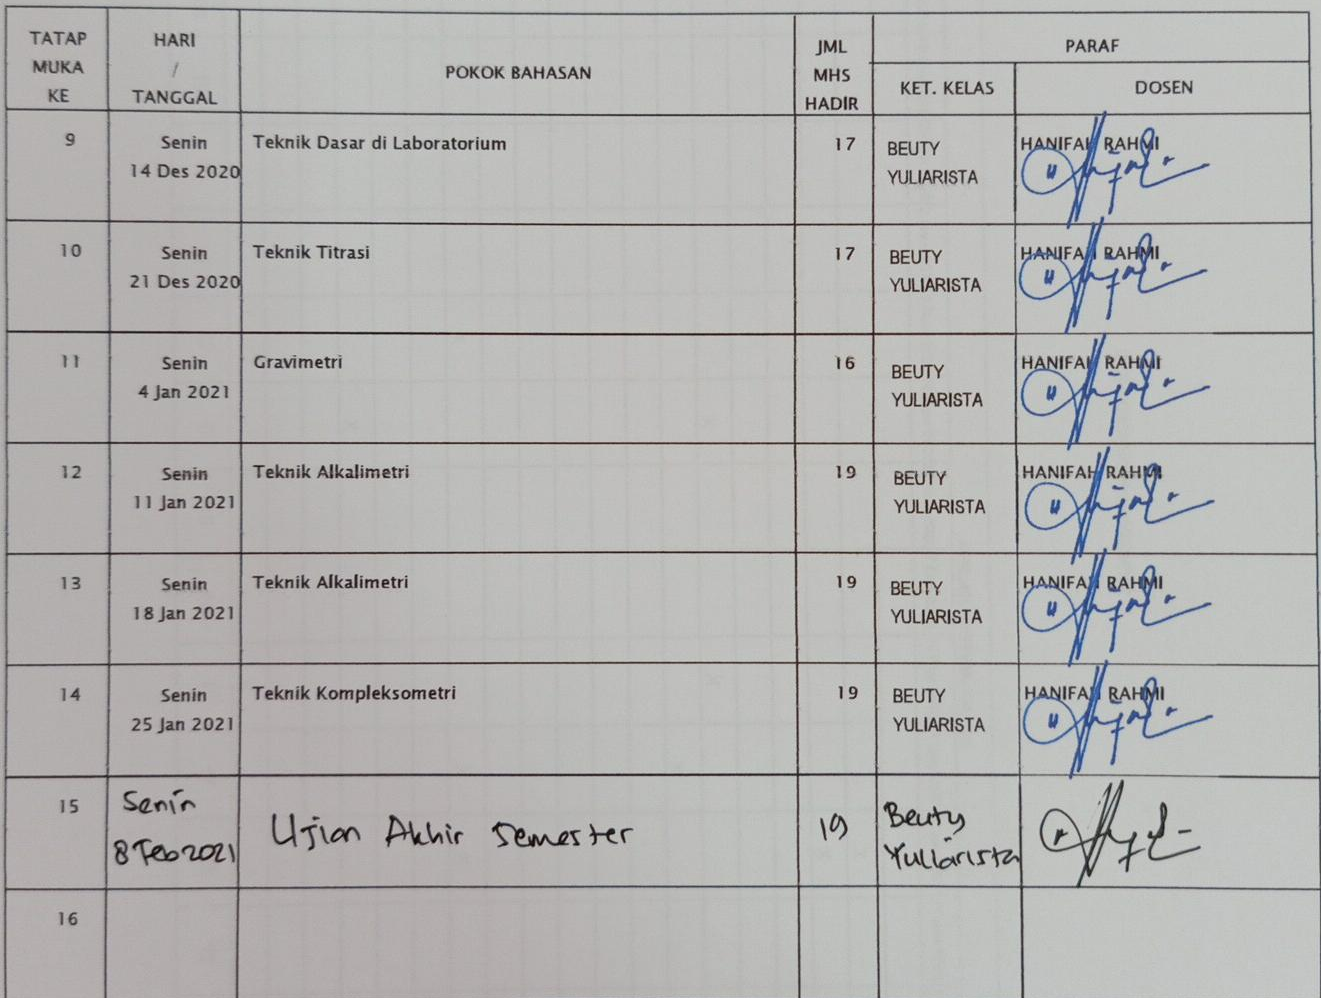 TATAP MUKA KE
HARI / TANGGAL
POKOK BAHASAN
JML MHS HADIR
PARAF
KET. KELAS
DOSEN
9
Senin
14 Des 2020
Teknik Dasar di Laboratorium
17
BEUTY
YULIARISTA
HANIFAH RAHMI
10
Senin
21 Des 2020
Teknik Titrasi
17
BEUTY
YULIARISTA
HANIFAH RAHMI
11
Senin
4 Jan 2021
Gravimetri
16
BEUTY
YULIARISTA
HANIFAH RAHMI
12
Senin
11 Jan 2021
Teknik Alkalimetri
19
BEUTY
YULIARISTA
HANIFAH RAHMI
13
Senin
18 Jan 2021
Teknik Alkalimetri
19
BEUTY
YULIARISTA
HANIFAH RAHMI
14
Senin
25 Jan 2021
Teknik Kompleksometri
19
BEUTY
YULIARISTA
HANIFAH RAHMI
15
Senin
8 Feb 2021
Ujian Akhir Semester
19
Beuty
Yuliarista
16